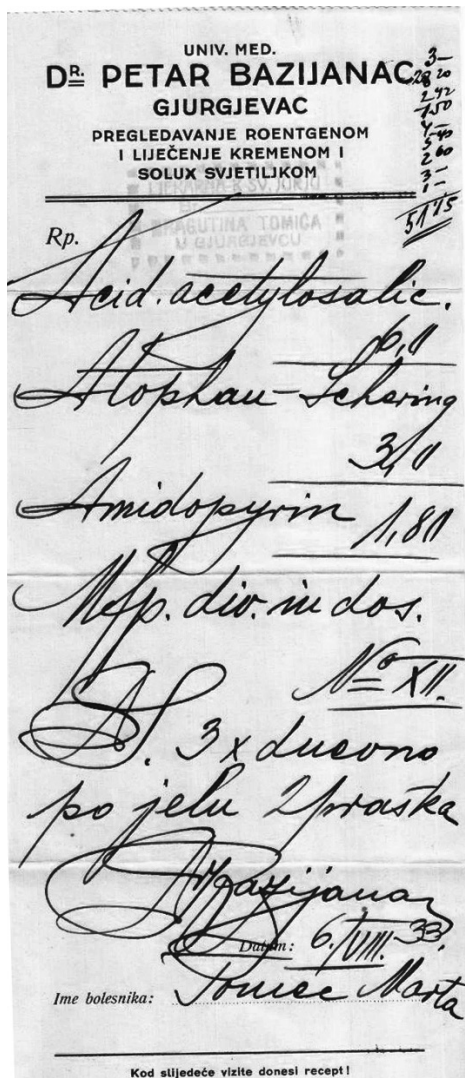 UNIV. MED.
DR. PETAR BAZIJANAC
GJURGJEVAC
PREGLEDAVANJE ROENTGENOM
I LIJEČENJE KREMENOM I
SOLUX SVJETILJKOM
3—
28 20
2 42
1 50
4—
5 40
2 60
3—
1—
51 15
LJEKARNA K SV. JURJU
DRAGUTINA TOMICA
U GJURGJEVCU
Rp.
Acid. acetylosalic.
6,0
Atophan-Schering
3,0
Amidopyrin
1,80
M.f.p. div. in dos.
No XII.
D.S. 3 x dnevno
po jelu 2 praška
Dr Bazijanac
Datum: 6./VIII. 33.
Ime bolesnika: Tomec Marta
Kod slijedeće vizite donesi recept!